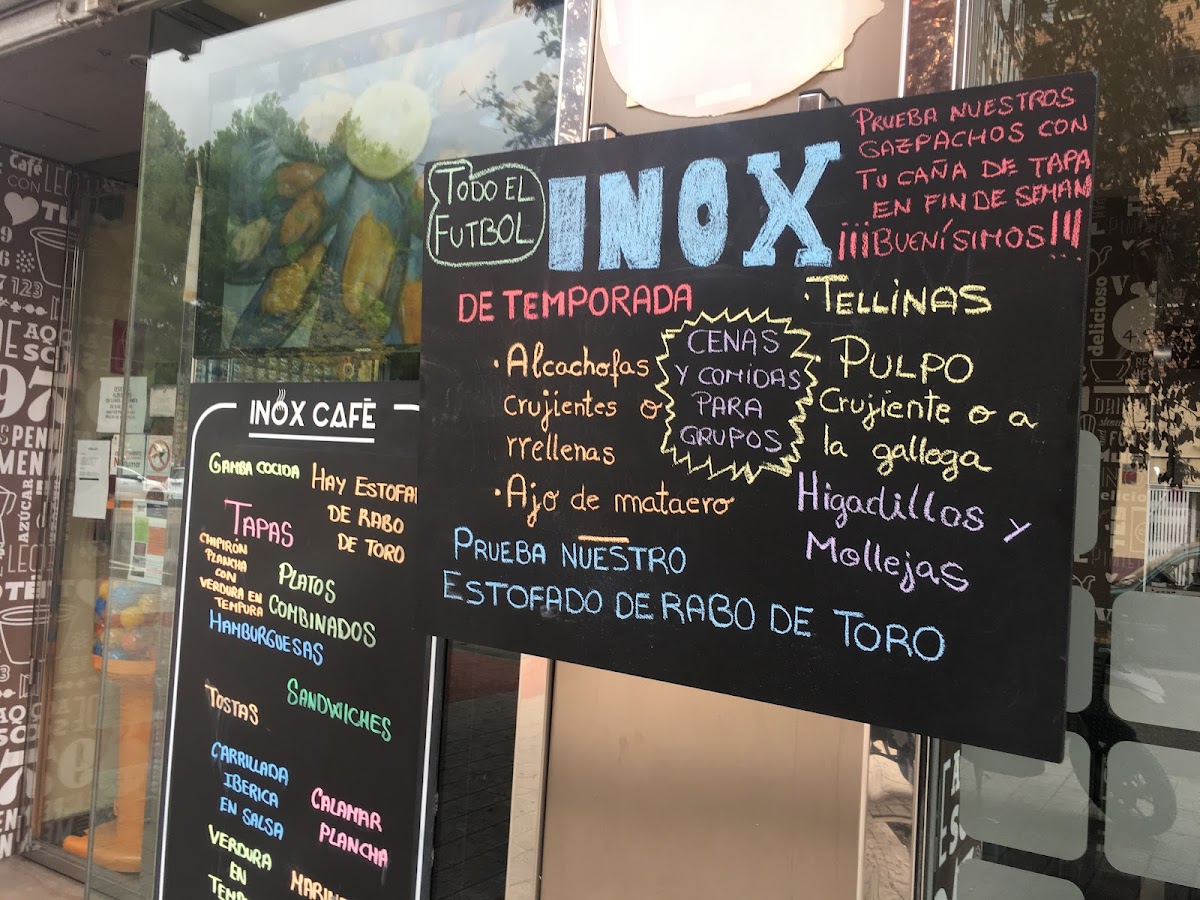 TODO EL
FUTBOL
INOX
PRUEBA NUESTROS
GAZPACHOS CON
TU CAÑA DE TAPA
EN FIN DE SEMAN
¡¡¡BUENÍSIMOS!!!
DE TEMPORADA
· Alcachofas
crujientes o
rrellenas
· Ajo de mataero
CENAS
Y COMIDAS
PARA
GRUPOS
· TELLINAS
· PULPO
Crujiente o a
la galloga
Higadillos y
Mollejas
PRUEBA NUESTRO
ESTOFADO DE RABO DE TORO
INOX CAFÉ
GAMBA COCIDA
HAY ESTOFA
DE RABO
DE TORO
TAPAS
CHIPIRÓN
PLANCHA
CON
VERDURA EN
TEMPURA
PLATOS
COMBINADOS
HAMBURGUESAS
SANDWICHES
TOSTAS
CARRILLADA
IBERICA
EN SALSA
CALAMAR
PLANCHA
VERDURA
EN
TEMP
MARIN
Café
CON
LEC
97
AZÚCAR
delicioso